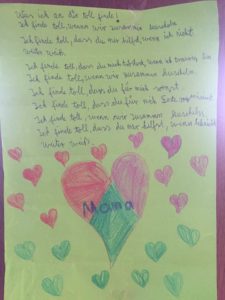 Was ich an Dir toll finde!
Ich finde toll, wenn wir zusammen kuscheln
Ich finde toll, dass du mir hilfst, wenn ich nicht
weiter weiß.
Ich finde toll, dass du mich tröstest, wenn ich traurig bin
Ich finde toll, wenn wir zusammen kuscheln
Ich finde toll, dass du für mich sorgst
Ich finde toll, dass du für mich
Ich finde toll, wenn wir zusammen kuscheln.
Ich finde toll, dass du mir hilfst, wenn ich nicht
weiter weiß.
Mama